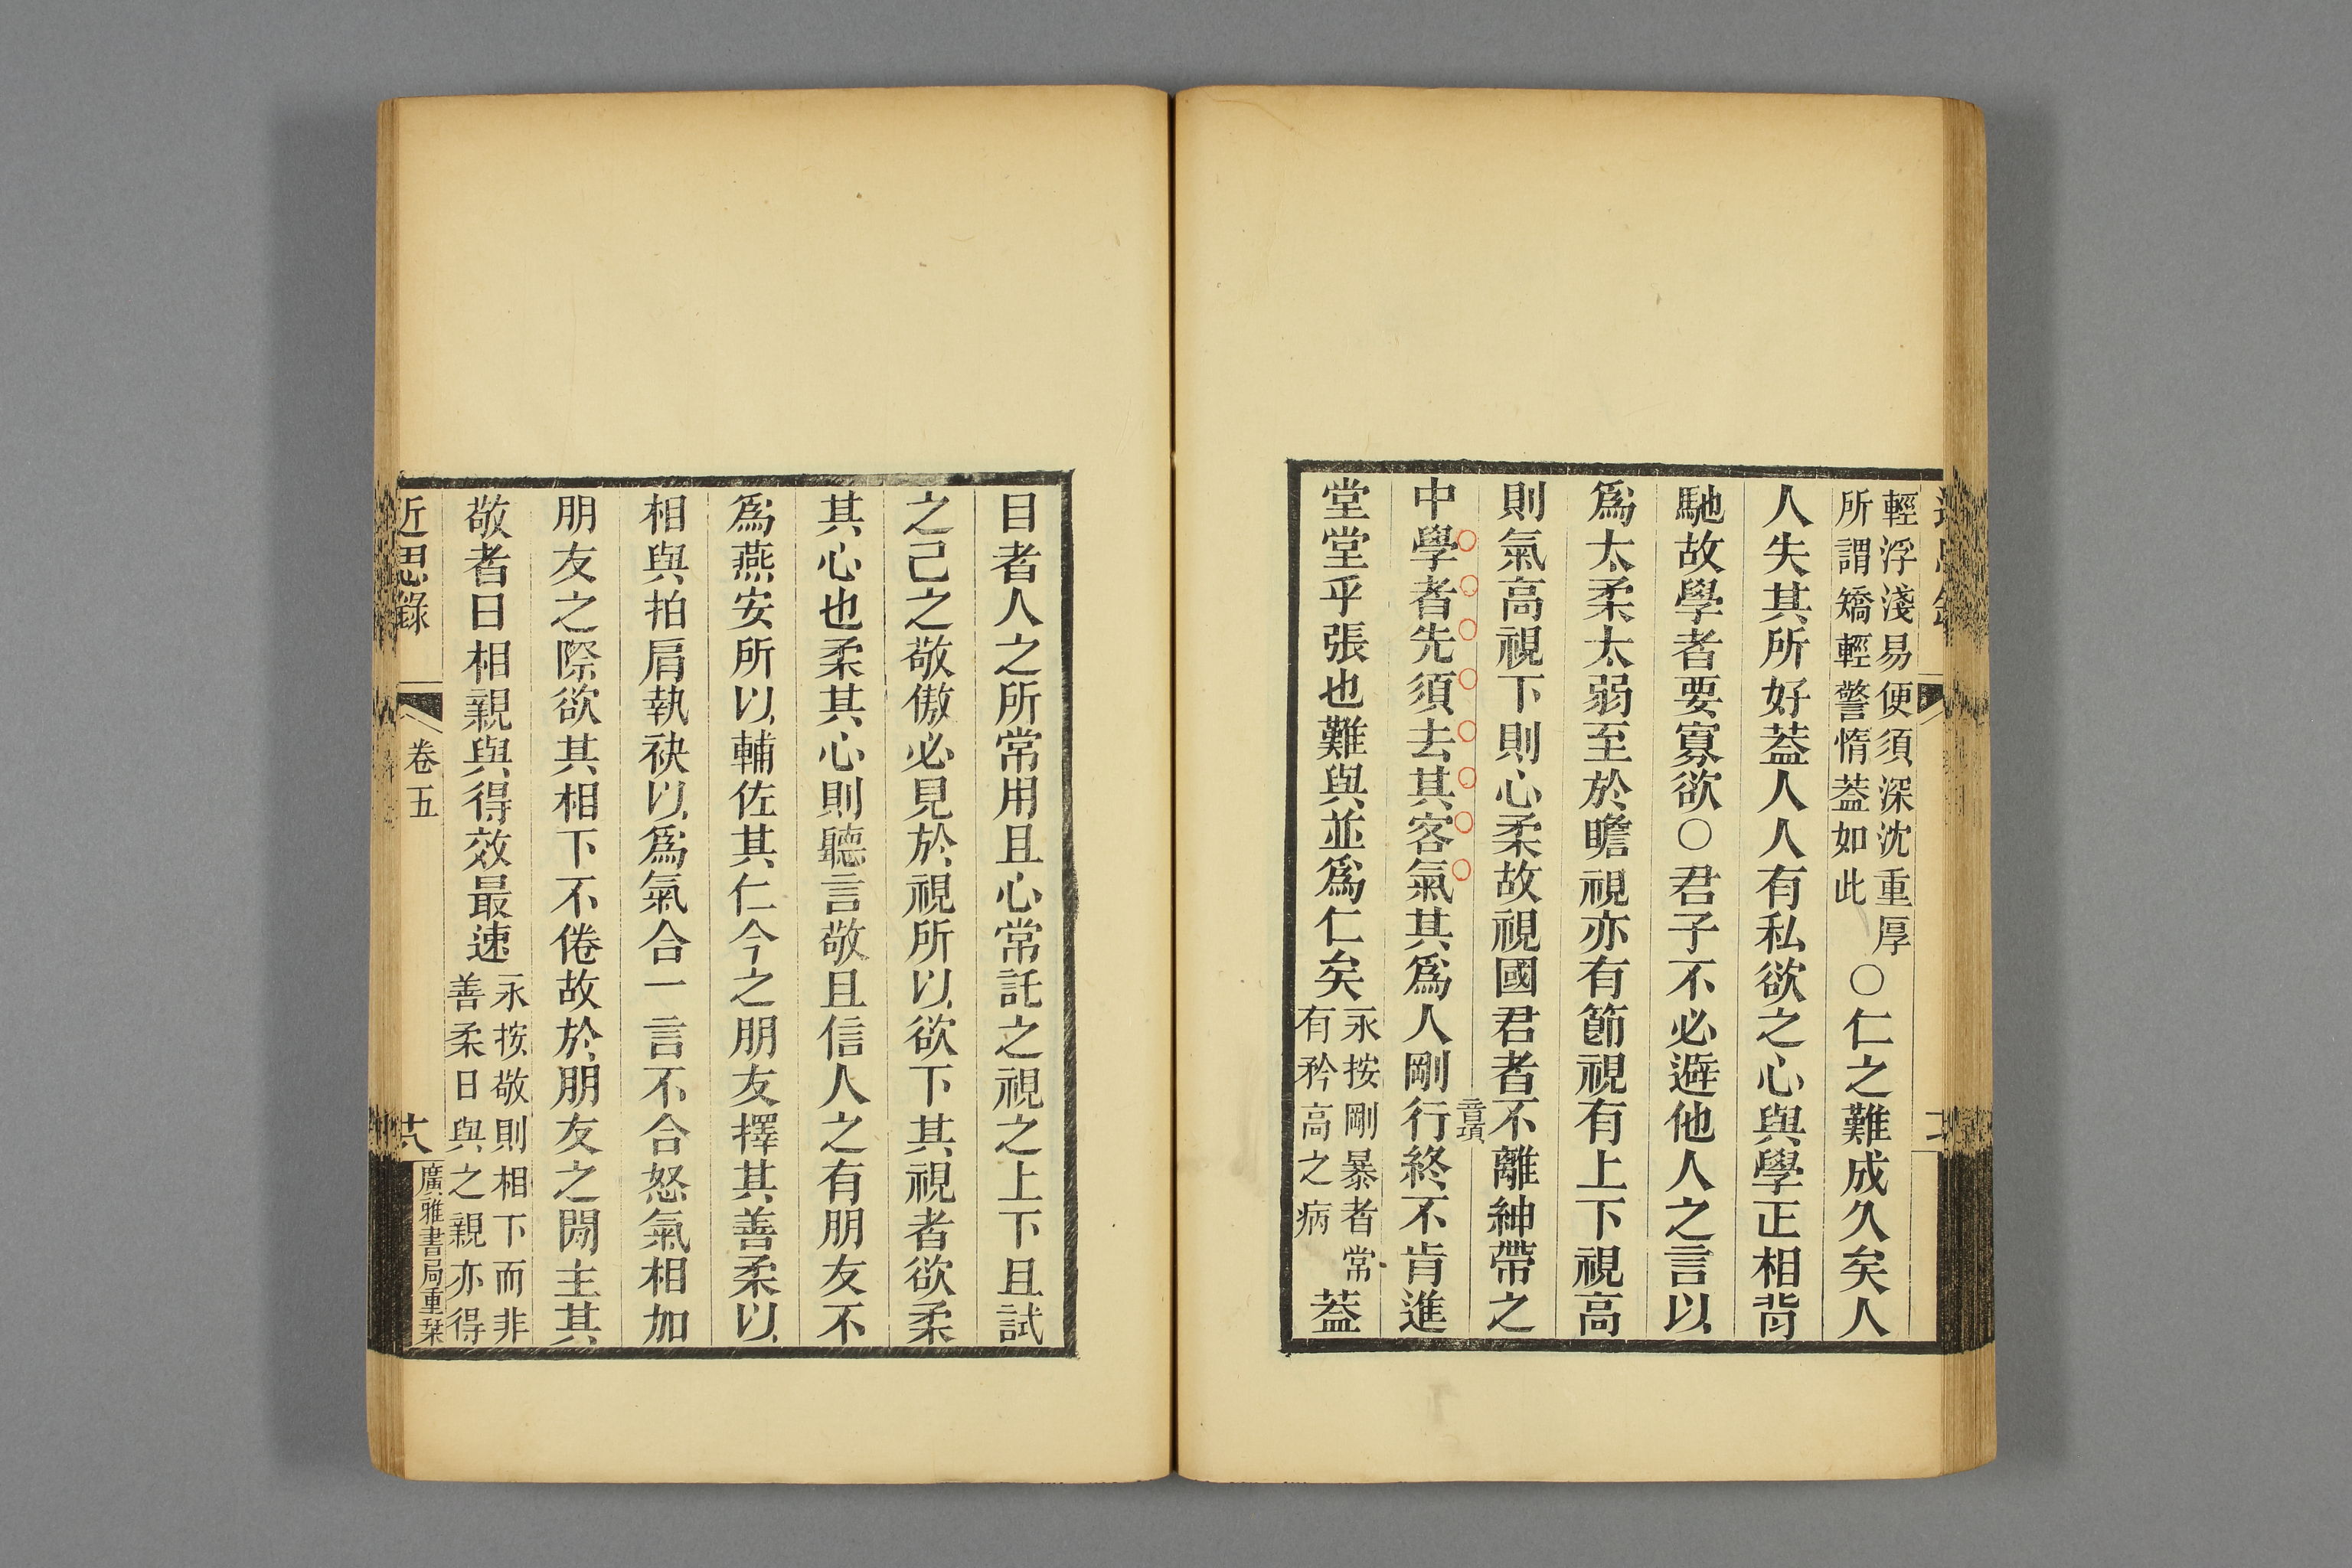 輕浮淺易便須深沈重厚
所謂矯輕警惰葢如此
○仁之難成久矣人
人失其所好葢人人有私欲之心與學正相背
馳故學者要寡欲○君子不必避他人之言以
爲太柔太弱至於瞻視亦有節視有上下視高
則氣高視下則心柔故視國君者不離紳帶之
中學者先須去其客氣其爲人剛行終不肯進
音項
堂堂乎張也難與並爲仁矣
永按剛暴者常
有矜高之病
葢
目者人之所常用且心常託之視之上下且試
之己之敬傲必見於視所以欲下其視者欲柔
其心也柔其心則聽言敬且信人之有朋友不
爲燕安所以輔佐其仁今之朋友擇其善柔以
相與拍肩執袂以爲氣合一言不合怒氣相加
朋友之際欲其相下不倦故於朋友之閒主其
敬者日相親與得效最速
永按敬則相下而非
善柔日與之親亦得
近思錄
卷五
十八
廣雅書局重栞